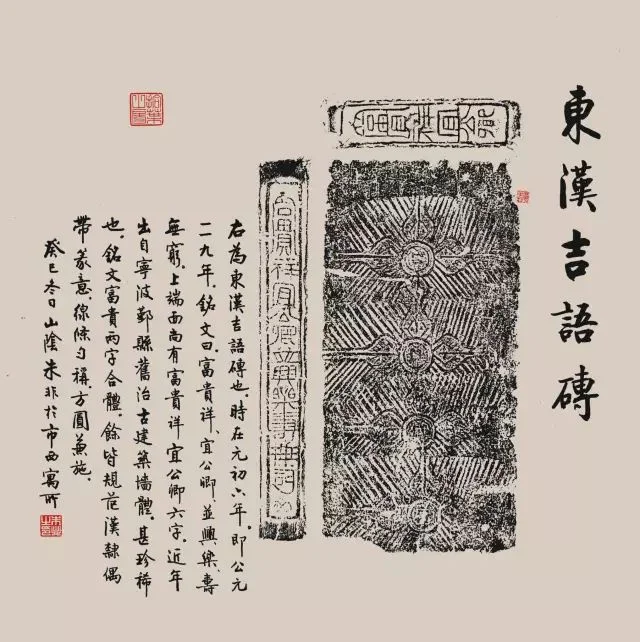 東漢吉語磚
富貴祥宜公卿
富貴祥宜公卿並興樂壽毋窮
右為東漢吉語磚也。時在元初六年,即公元
一一九年。銘文曰:富貴祥、宜公卿、並興樂、壽
無窮。上端面尚有富貴祥宜公卿六字。近年
出自寧波鄞縣舊治古建築墻體。甚珍稀
也。銘文富貴兩字合體,餘皆規范漢隸偶
帶篆意,線條勻稱,方圓兼施.
癸巳冬日山陰朱非於市西寓所